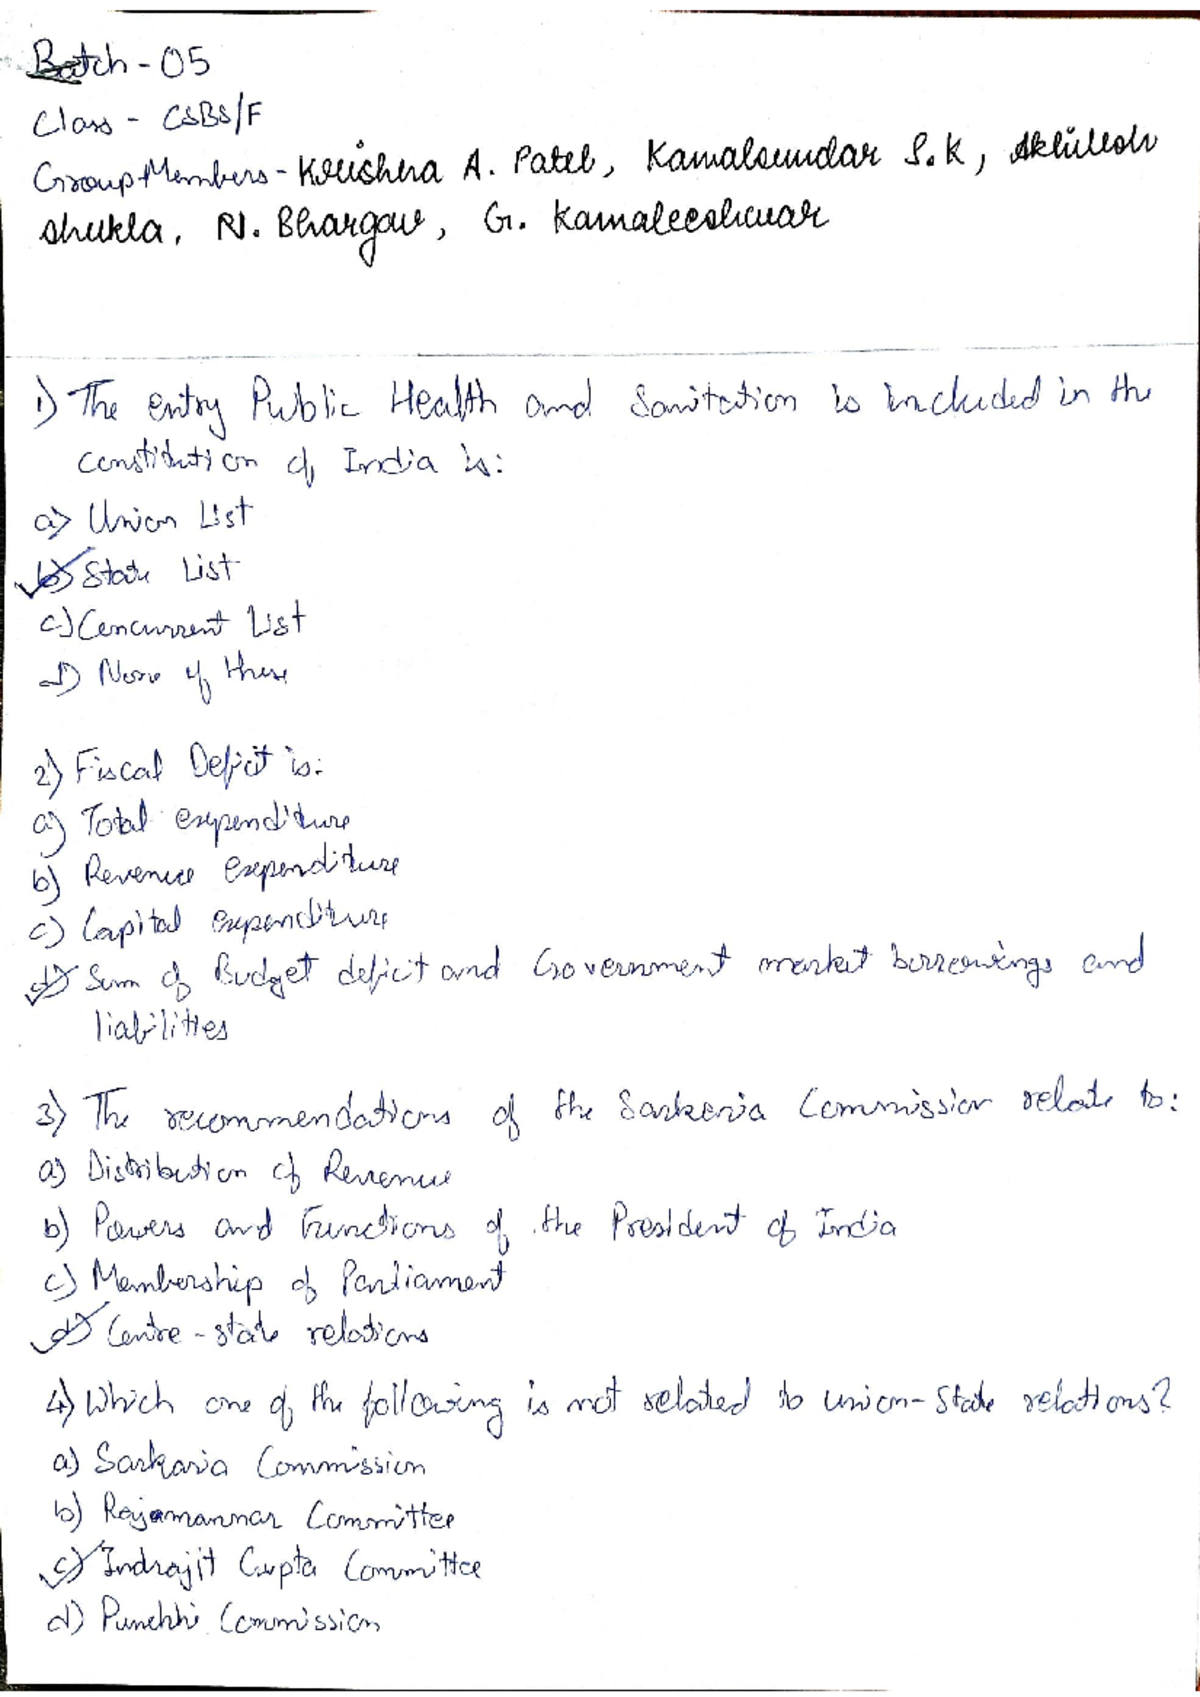 Batch - 05
Class - CSBS/F
Group Members - Krishna A. Patel, Kamalsundar S.K, Akhilesh
Shukla, N. Bhargav, G. Kamaleeshwar
1) The entry Public Health and Sanitation is included in the
constitution of India is:
a) Union List
b) State List
c) Concurrent List
d) None of these
2) Fiscal Deficit is:
a) Total expenditure
b) Revenue expenditure
c) Capital expenditure
d) Sum of Budget deficit and Government market borrowings and
liabilities
3) The recommendations of the Sarkeria Commission relate to:
a) Distribution of Revenue
b) Powers and Functions of the President of India
c) Membership of Parliament
d) Centre - state relations
4) Which one of the following is not related to union - State relations?
a) Sarkaria Commission
b) Rajamannar Committee
c) Indrajit Gupta Committee
d) Punchhi Commission